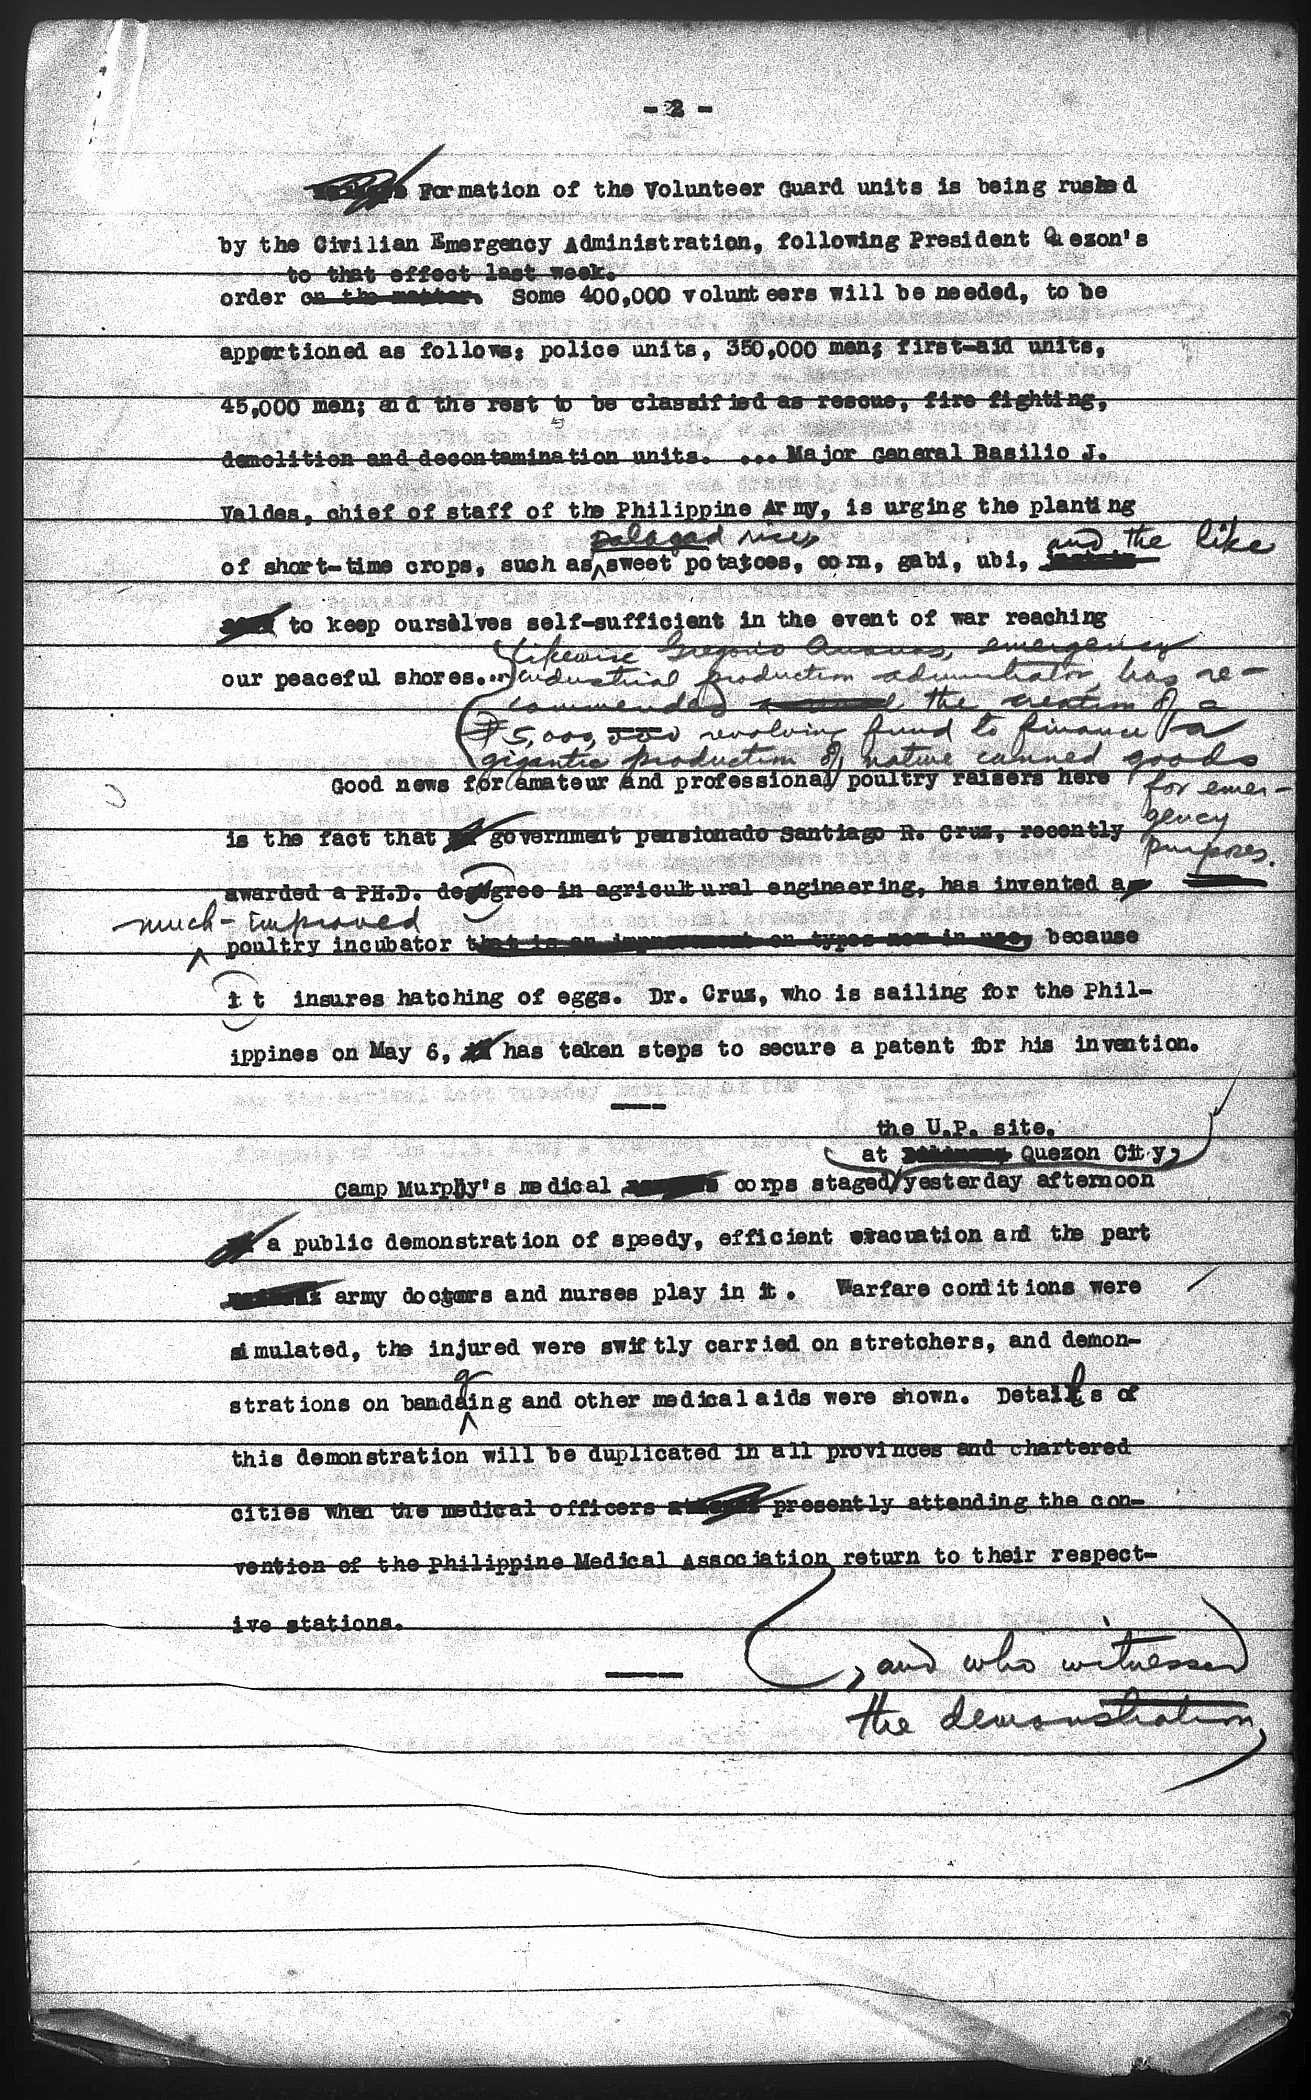 - 2 -
Formation of the Volunteer Guard units is being rushed
by the Civilian Emergency Administration, following President Quezon's
to that effect last week.
order on the matter. Some 400,000 volunteers will be needed, to be
apportioned as follows: police units, 350,000 men; first-aid units,
45,000 men; and the rest to be classified as rescue, fire fighting,
demolition and decontamination units. ... Major General Basilio J.
Valdes, chief of staff of the Philippine Army, is urging the planting
palagad rice, and the like
of short-time crops, such as sweet potatoes, corn, gabi, ubi,
to keep ourselves self-sufficient in the event of war reaching
Likewise Gregorio Anonas, emergency
our peaceful shores... industrial production administrator, has re-
commended the creation of a
₱5,000,000 revolving fund to finance a
gigantic production of native canned goods
Good news for amateur and professional poultry raisers here
for emer-
gency
purposes.
is the fact that government pensionado Santiago R. Cruz, recently
awarded a PH.D. degree in agricultural engineering, has invented a
much-improved
poultry incubator that is an improvement on types now in use, because
it insures hatching of eggs. Dr. Cruz, who is sailing for the Phil-
ippines on May 6, has taken steps to secure a patent for his invention.
the U.P. site.
at Quezon City,
Camp Murphy's medical corps staged yesterday afternoon
a public demonstration of speedy, efficient evacuation and the part
army doctors and nurses play in it. Warfare conditions were
simulated, the injured were swiftly carried on stretchers, and demon-
g
strations on bandaing and other medical aids were shown. Details of
this demonstration will be duplicated in all provinces and chartered
cities when the medical officers presently attending the con-
vention of the Philippine Medical Association return to their respect-
ive stations.
, and who witnessed
the demonstration,